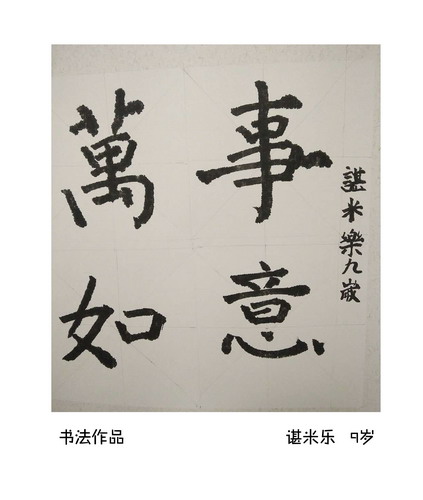 萬事
如意
諶米樂九歲
书法作品
谌米乐 9岁